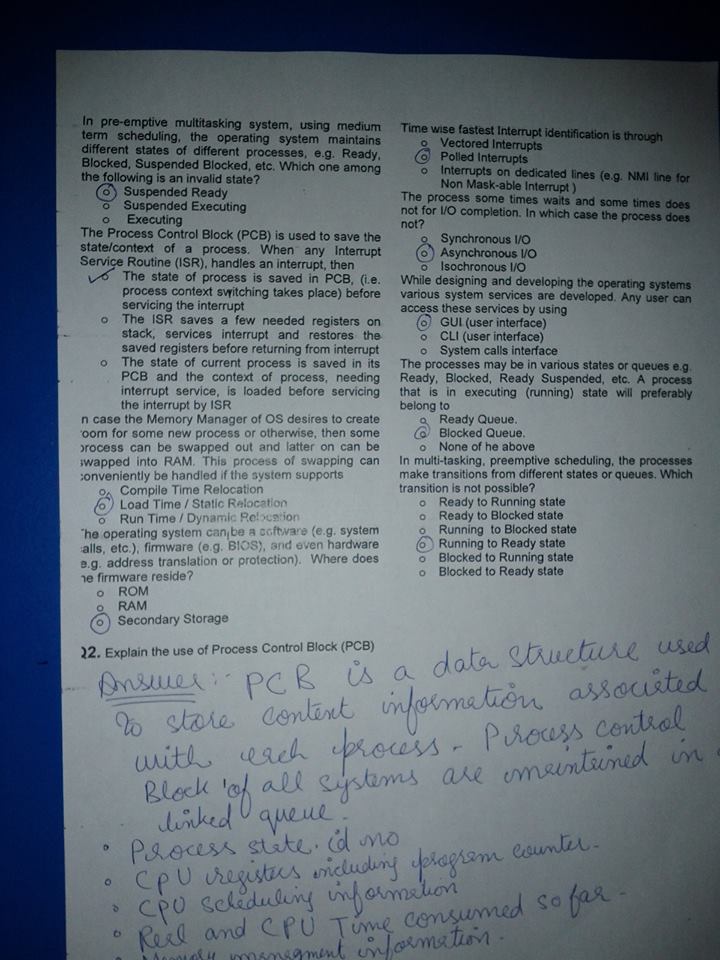 In pre-emptive multitasking system, using medium
term scheduling, the operating system maintains
different states of different processes, e.g. Ready,
Blocked, Suspended Blocked, etc. Which one among
the following is an invalid state?
Suspended Ready
Suspended Executing
Executing
The Process Control Block (PCB) is used to save the
state/context of a process. When any Interrupt
Service Routine (ISR), handles an interrupt, then
The state of process is saved in PCB, (i.e.
process context switching takes place) before
servicing the interrupt
The ISR saves a few needed registers on
stack, services interrupt and restores the
saved registers before returning from interrupt
The state of current process is saved in its
PCB and the context of process, needing
interrupt service, is loaded before servicing
the interrupt by ISR
n case the Memory Manager of OS desires to create
oom for some new process or otherwise, then some
process can be swapped out and latter on can be
swapped into RAM. This process of swapping can
conveniently be handled if the system supports
Compile Time Relocation
Load Time / Static Relocation
Run Time / Dynamic Relocation
he operating system can be a software (e.g. system
alls, etc.), firmware (e.g. BIOS), and even hardware
e.g. address translation or protection). Where does
he firmware reside?
ROM
RAM
Secondary Storage
Time wise fastest Interrupt identification is through
Vectored Interrupts
Polled Interrupts
Interrupts on dedicated lines (e.g. NMI line for
Non Mask-able Interrupt )
The process some times waits and some times does
not for I/O completion. In which case the process does
not?
Synchronous I/O
Asynchronous I/O
Isochronous I/O
While designing and developing the operating systems
various system services are developed. Any user can
access these services by using
GUI (user interface)
CLI (user interface)
System calls interface
The processes may be in various states or queues e.g.
Ready, Blocked, Ready Suspended, etc. A process
that is in executing (running) state will preferably
belong to
Ready Queue.
Blocked Queue.
None of he above
In multi-tasking, preemptive scheduling, the processes
make transitions from different states or queues. Which
transition is not possible?
Ready to Running state
Ready to Blocked state
Running to Blocked state
Running to Ready state
Blocked to Running state
Blocked to Ready state
Q2. Explain the use of Process Control Block (PCB)
Answer:- PCB is a data structure used
to store content information associated
with each process. Process control
Block of all systems are maintained in
linked queue.
Process state. id no
CPU registers including program counter.
CPU scheduling information
Real and CPU Time consumed so far.
Memory managment information.